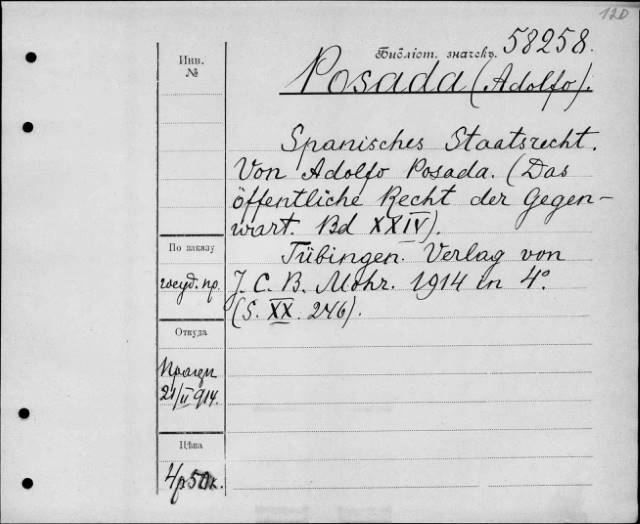 120
Библіот. значекъ 58258.
Инв.
№
Posada (Adolfo).
Spanisches Staatsrecht.
Von Adolfo Posada. (Das
öffentliche Recht der Gegen-
wart. Bd XXIV).
По заказу
госуд. пр.
Tübingen. Verlag von
J. C. B. Mohr. 1914 in 4°.
(S. XX. 246).
Откуда
21/II 914.
Цѣна
4р 50к.